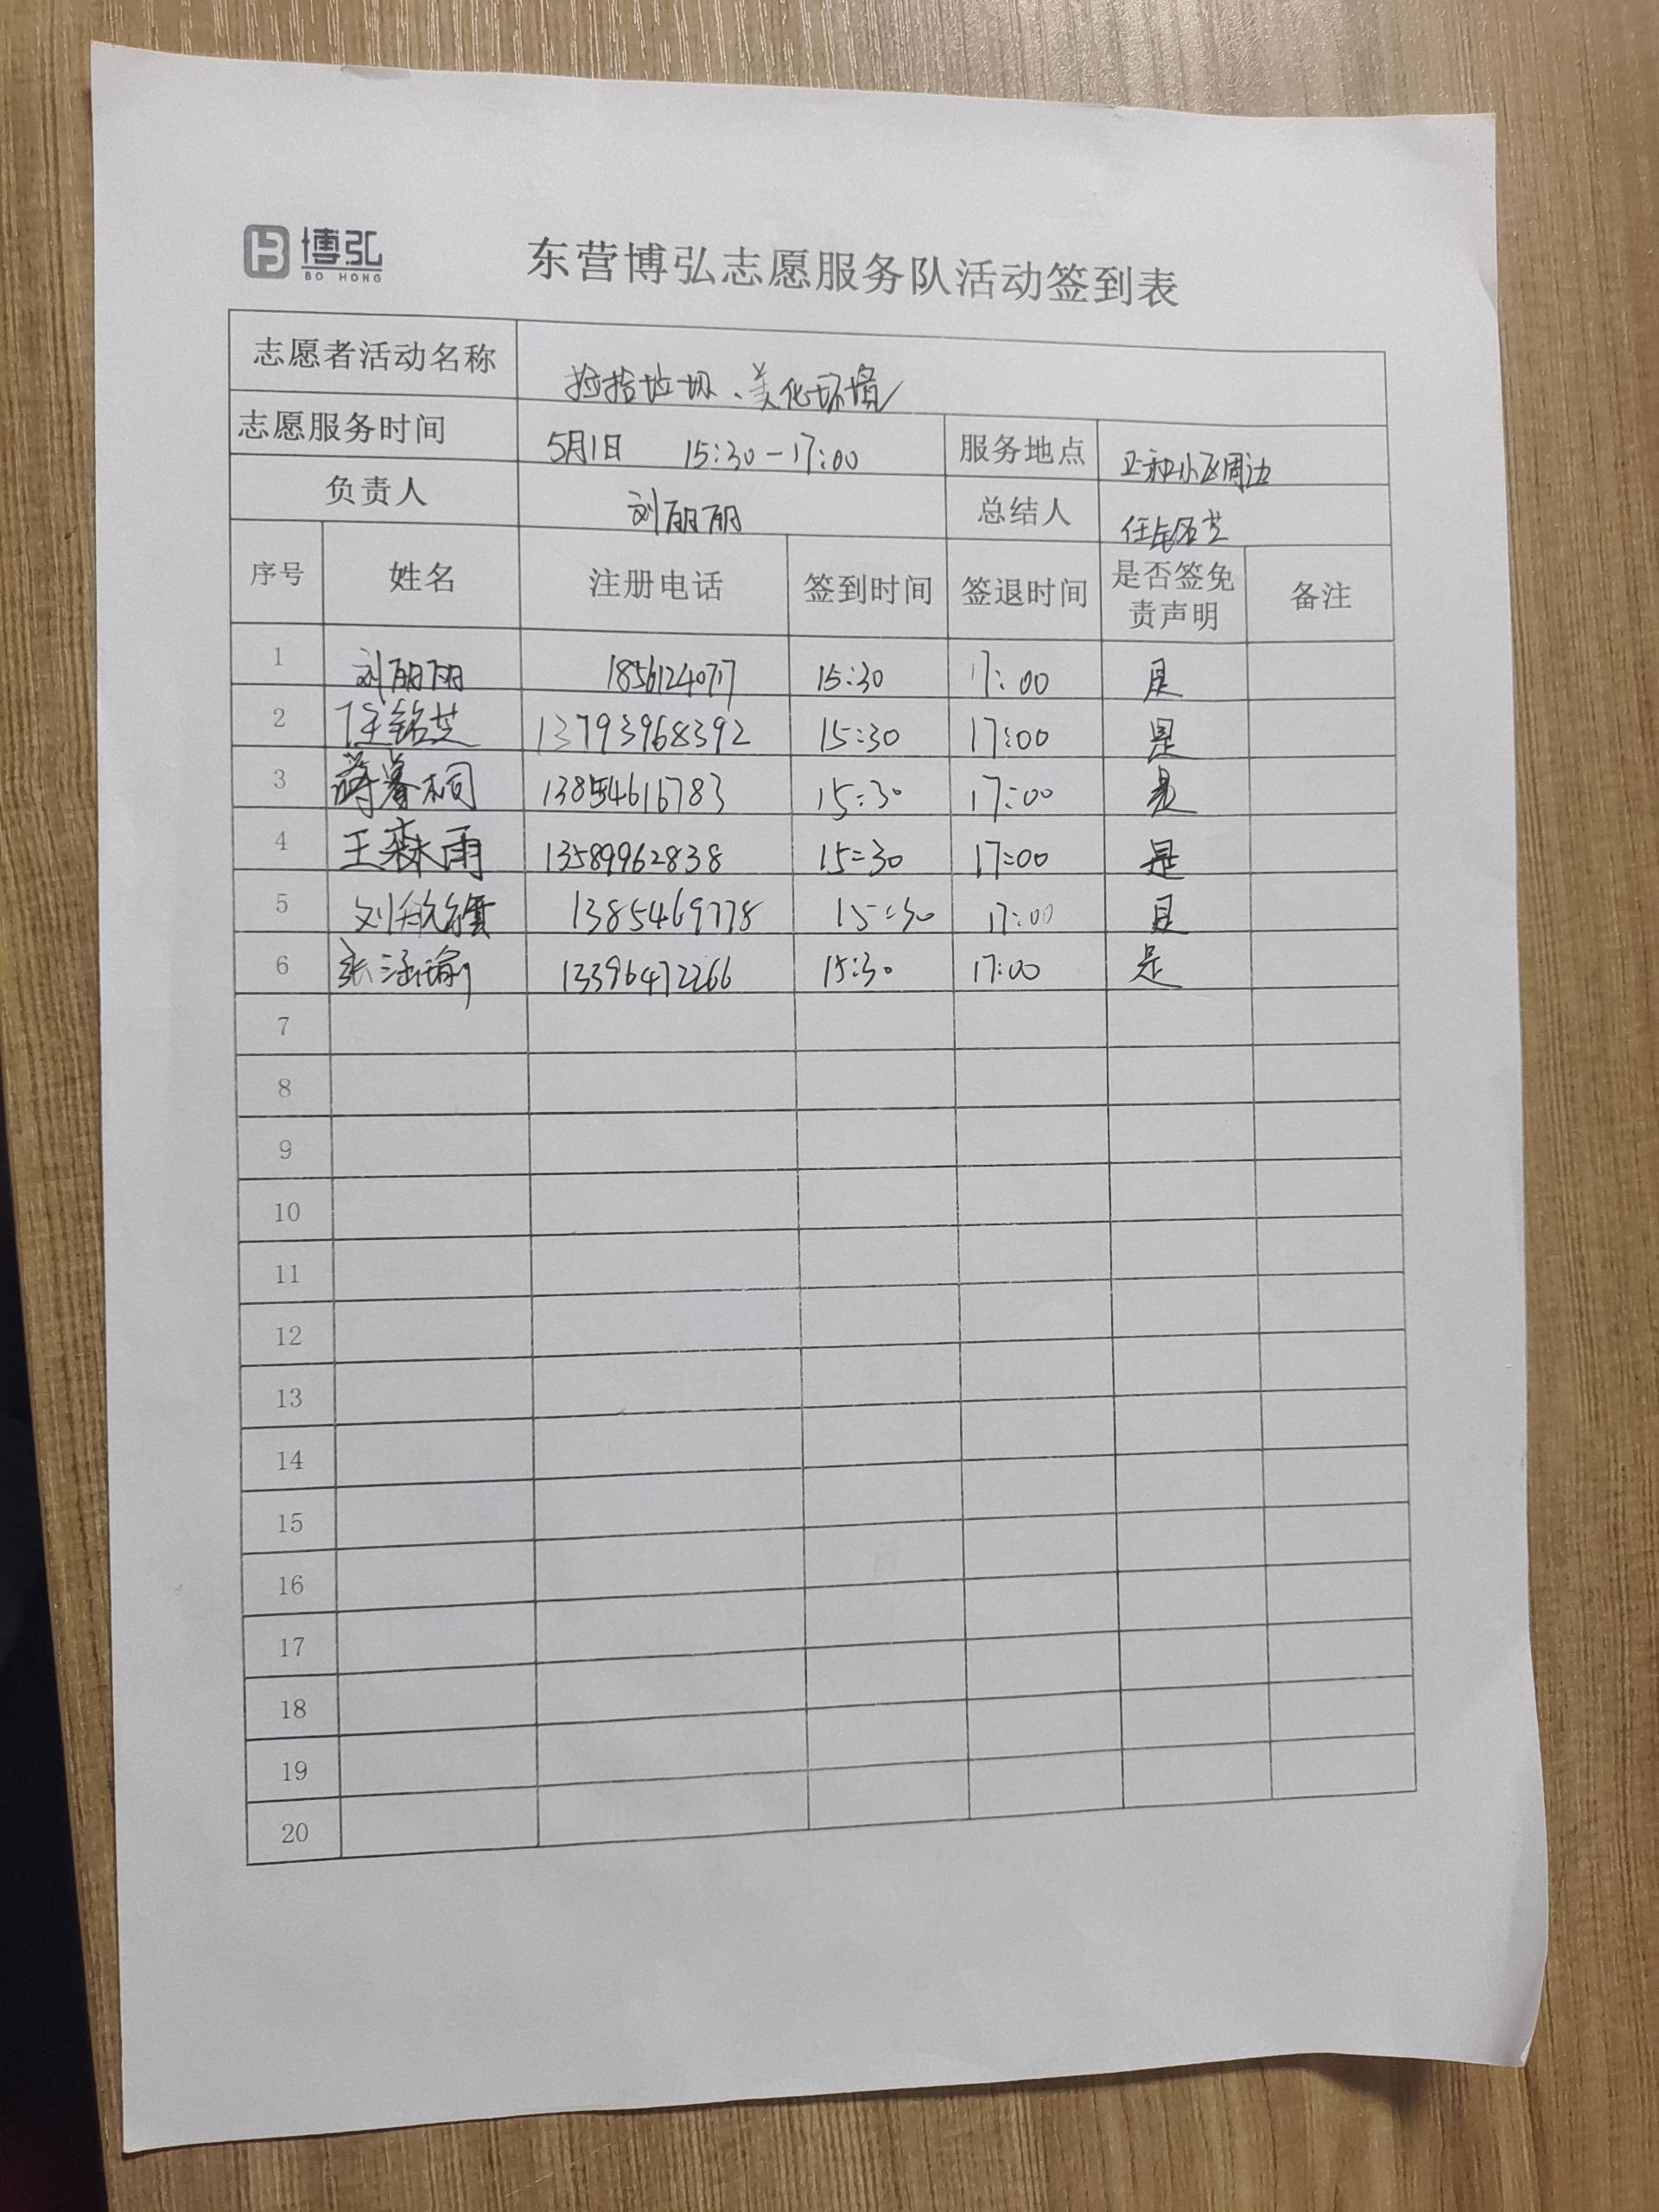 博弘
BO HONG
东营博弘志愿服务队活动签到表
志愿者活动名称 捡拾垃圾、美化环境
志愿服务时间 5月1日 15:30-17:00 服务地点 正和小区周边
负责人 刘丽丽 总结人 任铭芝
序号 姓名 注册电话 签到时间 签退时间 是否签免责声明 备注
1 刘丽丽 15:30 17:00 是
2 任铭芝 13793968392 15:30 17:00 是
3 13854616783 15:30 17:00 是
4 王森雨 13589962838 15:30 17:00 是
5 15:30 17:00 是
6 张涵瑜 13396472266 15:30 17:00 是
7
8
9
10
11
12
13
14
15
16
17
18
19
20